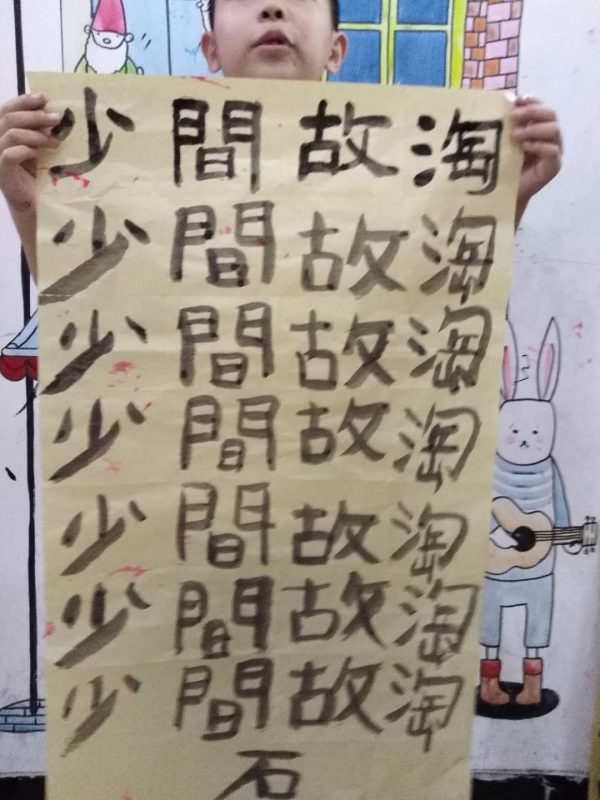 少間故淘
少間故淘
少間故淘
少間故淘
少間故淘
少間故淘
少間故淘
石